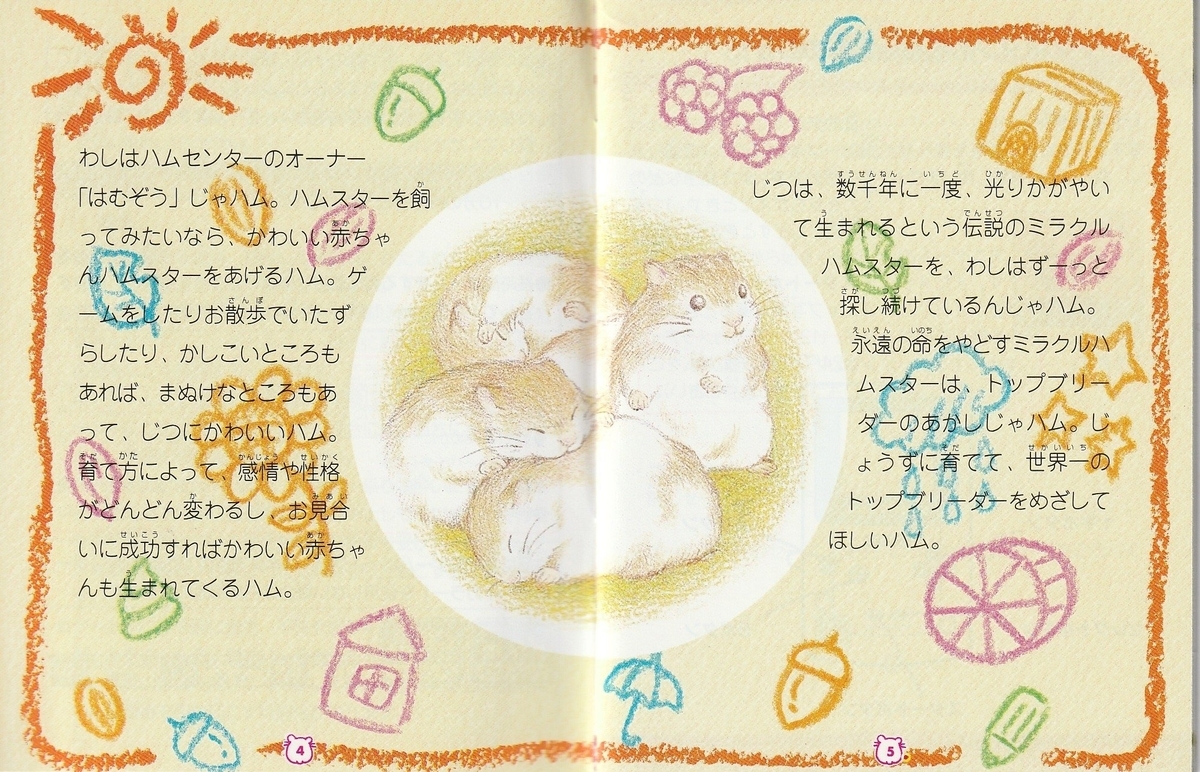 わしはハムセンターのオーナー
「はむぞう」じゃハム。ハムスターを飼
ってみたいなら、かわいい赤ちゃ
んハムスターをあげるハム。ゲ
ームをしたりお散歩でいたず
らしたり、かしこいところも
あれば、まぬけなところもあ
って、じつにかわいいハム。
育て方によって、感情や性格
がどんどん変わるし、お見合
いに成功すればかわいい赤ちゃ
んも生まれてくるハム。
じつは、数千年に一度、光りかがやい
て生まれるという伝説のミラクル
ハムスターを、わしはずーっと
探し続けているんじゃハム。
永遠の命をやどすミラクルハ
ムスターは、トップブリー
ダーのあかしじゃハム。じ
ょうずに育てて、世界一の
トップブリーダーをめざして
ほしいハム。
4
5